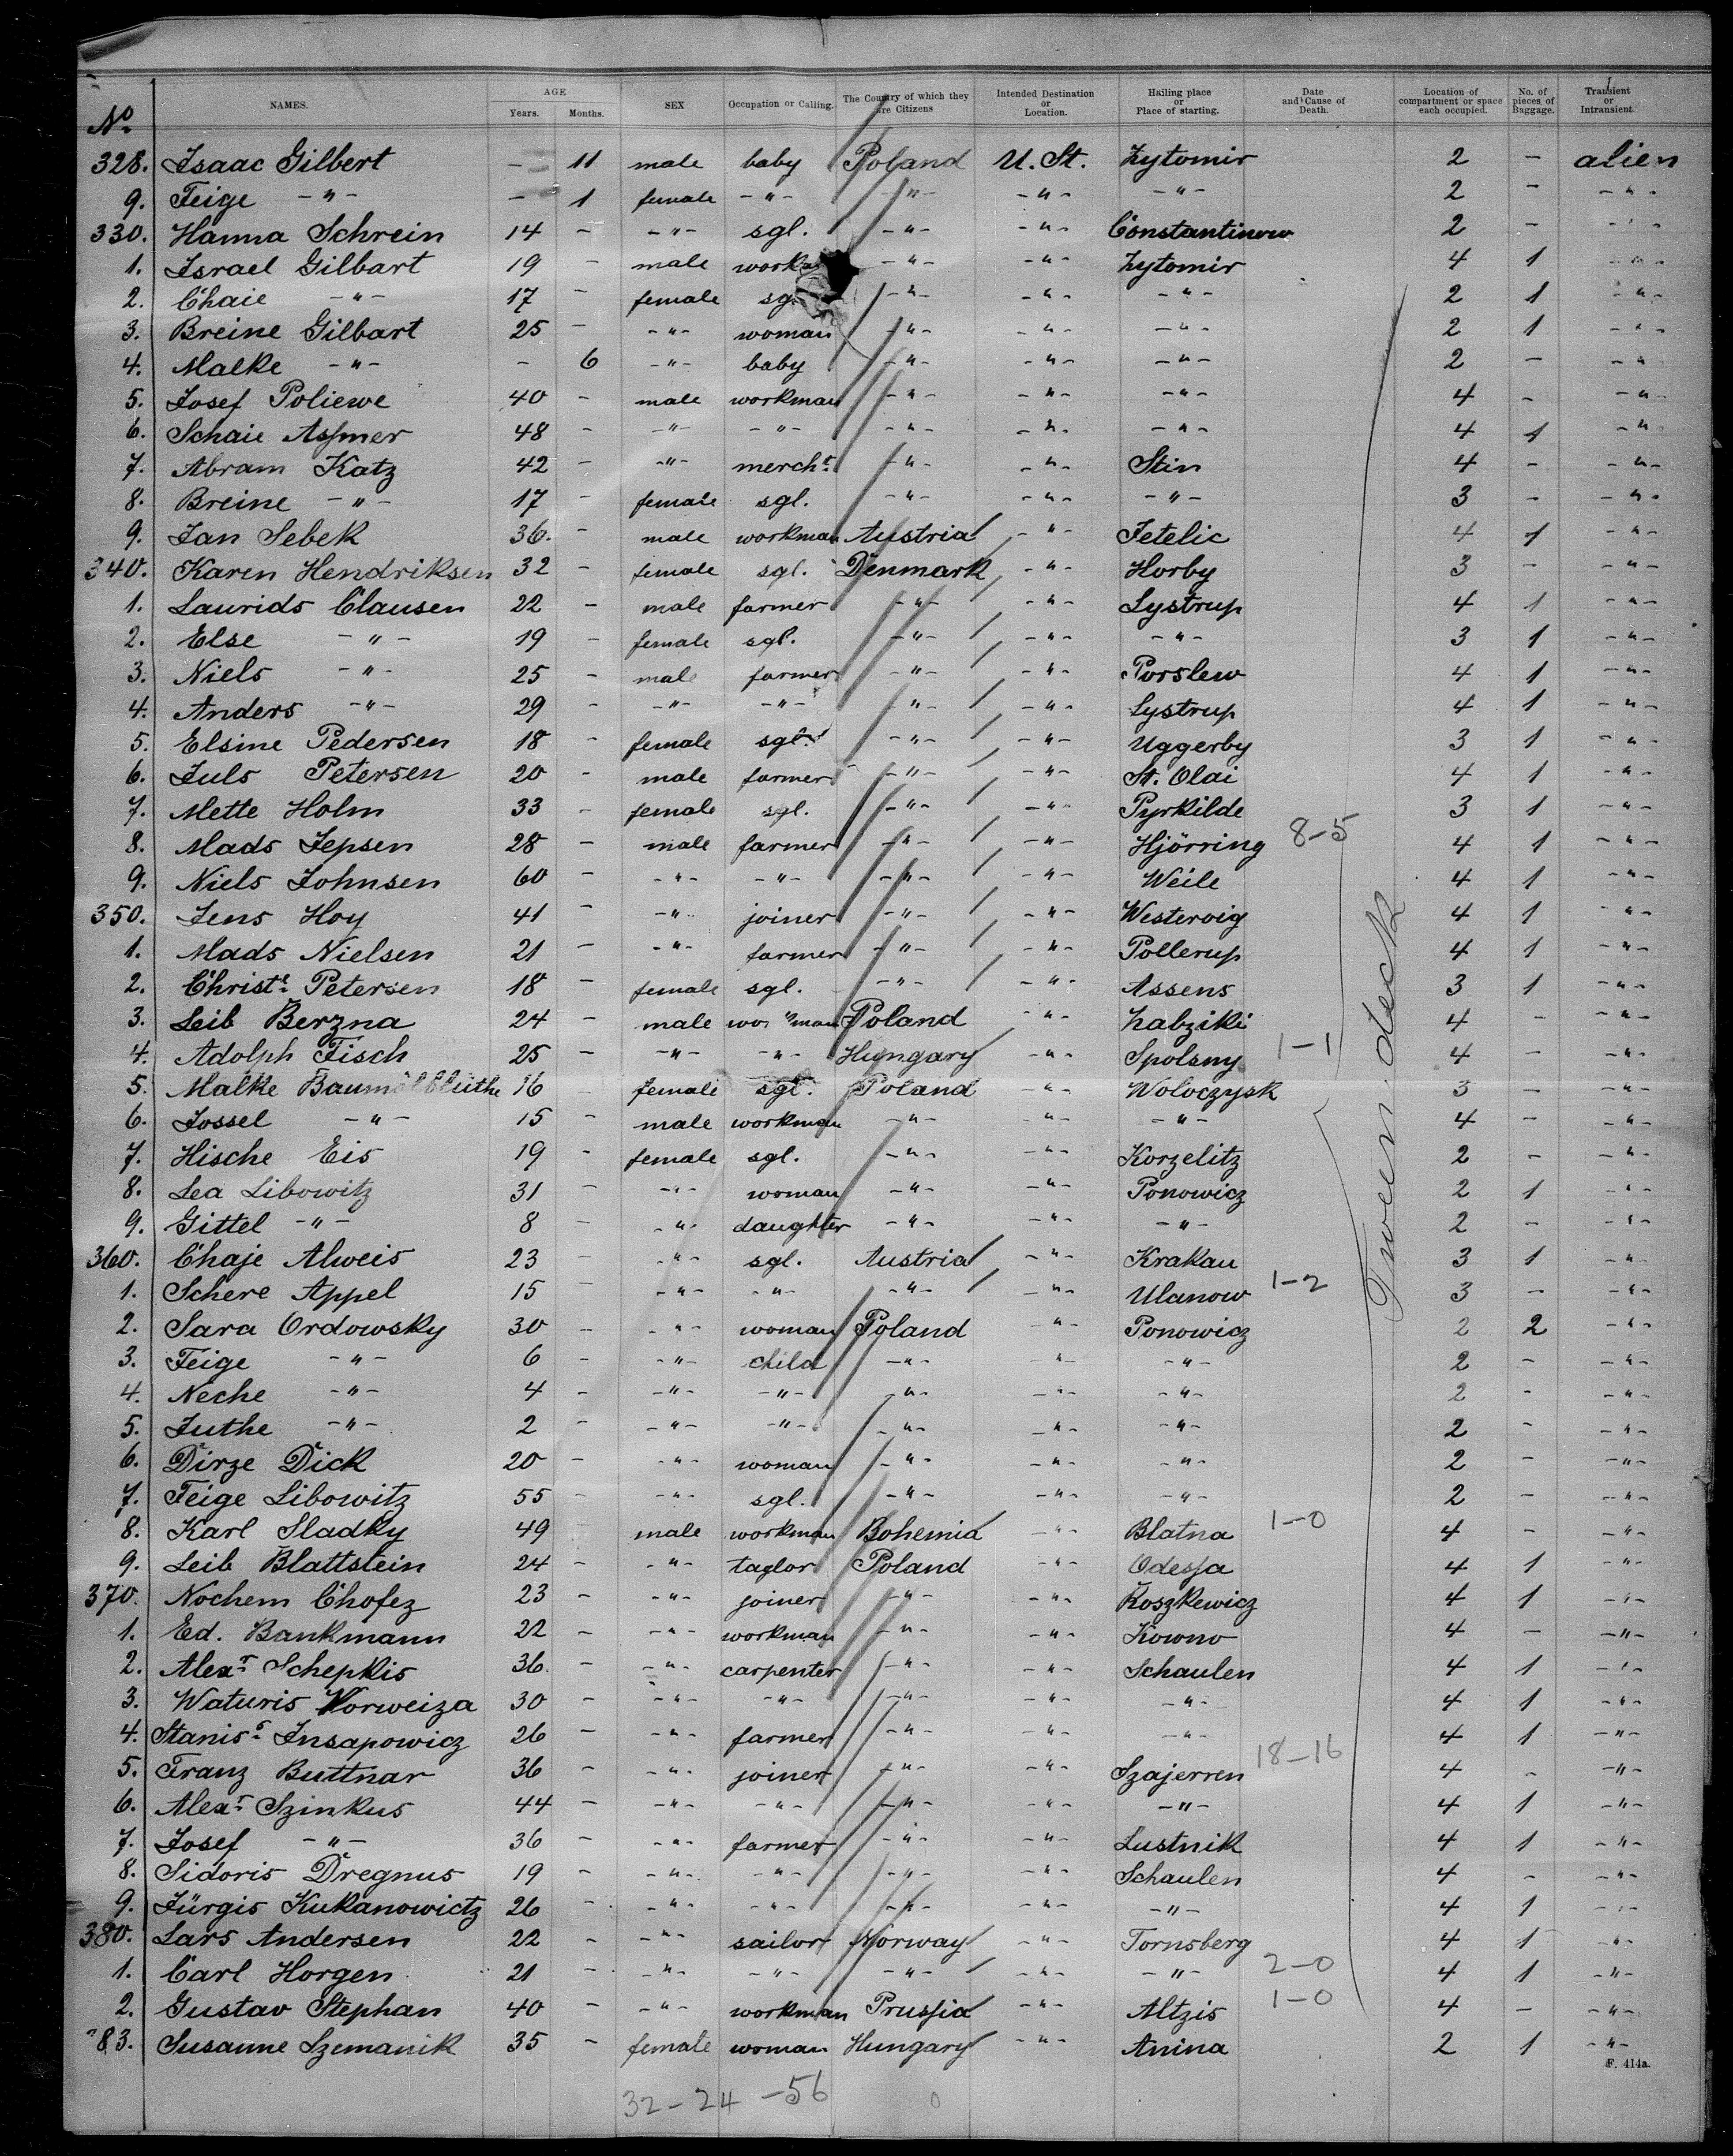 No. NAMES. AGE Years. Months. SEX Occupation or Calling. The Country of which they are Citizens Intended Destination or Location. Hailing place or Place of starting. Date and Cause of Death. Location of compartment or space each occupied. No. of pieces of Baggage. Transient or Intransient.
328. Isaac Gilbert - 11 male baby Poland U. St. Zytomir 2 - alien
9. Feige -"- - 1 female -"- -"- -"- -"- 2 - -"-
330. Hanna Schrein 14 - -"- sgl. -"- -"- Constantinow 2 - -"-
1. Israel Gilbart 19 - male -"- -"- Zytomir 4 1 -"-
2. Chaie -"- 17 - female -"- -"- -"- 2 1 -"-
3. Breine Gilbart 25 - -"- woman -"- -"- -"- 2 1 -"-
4. Malke -"- - 6 -"- baby -"- -"- -"- 2 - -"-
5. Josef Poliewe 40 - male workman -"- -"- -"- 4 - -"-
6. Schaie Assmer 48 - -"- -"- -"- -"- -"- 4 1 -"-
7. Abram Katz 42 - -"- mercht. -"- -"- Stin 4 - -"-
8. Breine -"- 17 - female sgl. -"- -"- -"- 3 - -"-
9. Jan Sebek 36. - male workman Austria -"- Jetelic 4 1 -"-
340. Karen Hendriksen 32 - female sgl. Denmark -"- Horby 3 - -"-
1. Laurids Clausen 22 - male farmer -"- -"- Lystrup 4 1 -"-
2. Else -"- 19 - female sgl. -"- -"- -"- 3 1 -"-
3. Niels -"- 25 - male farmer -"- -"- Porslew 4 1 -"-
4. Anders -"- 29 - -"- -"- -"- -"- Lystrup 4 1 -"-
5. Elsine Pedersen 18 - female sgl. -"- -"- Uggerby 3 1 -"-
6. Juls Petersen 20 - male farmer -"- -"- St. Olai 4 1 -"-
7. Mette Holm 33 - female sgl. -"- -"- Pyrkilde 3 1 -"-
8. Mads Jepsen 28 - male farmer -"- -"- Hjörring 8-5 4 1 -"-
9. Niels Johnsen 60 - -"- -"- -"- -"- Weile 4 1 -"-
350. Jens Hoy 41 - -"- joiner -"- -"- Westervig 4 1 -"-
1. Mads Nielsen 21 - -"- farmer -"- -"- Pollerup 4 1 -"-
2. Christe. Petersen 18 - female sgl. -"- -"- Assens 3 1 -"-
3. Leib Berzna 24 - male workman Poland -"- Zabziki 4 - -"-
4. Adolph Fisch 25 - -"- -"- Hungary -"- Spolsny 1-1 4 - -"-
5. Malke 16 female sgl. Poland -"- Woloczysk 3 - -"-
6. Jossel -"- 15 - male workman -"- -"- -"- 4 - -"-
7. Hische Eis 19 - female sgl. -"- -"- Korzelitz 2 - -"-
8. Lea Libowitz 31 - -"- woman -"- -"- Ponowicz 2 1 -"-
9. Gittel -"- 8 - -"- daughter -"- -"- -"- 2 - -"-
360. Chaje Alweis 23 - -"- sgl. Austria -"- Krakau 3 1 -"-
1. Schere Appel 15 - -"- -"- -"- -"- Ulanow 1-2 3 - -"-
2. Sara Ordowsky 30 - -"- woman Poland -"- Ponowicz 2 2 -"-
3. Feige -"- 6 - -"- child -"- -"- -"- 2 - -"-
4. Neche -"- 4 - -"- -"- -"- -"- -"- 2 - -"-
5. Juthe -"- 2 - -"- -"- -"- -"- -"- 2 - -"-
6. Dirze Dick 20 - -"- woman -"- -"- -"- 2 - -"-
7. Feige Libowitz 55 - -"- sgl. -"- -"- -"- 2 - -"-
8. Karl Sladky 49 male workman Bohemia -"- Blatna 1-0 4 - -"-
9. Leib Blattstein 24 - -"- taylor Poland -"- Odessa 4 1 -"-
370. Nochem Chofez 23 - -"- joiner -"- -"- Roszkewicz 4 1 -"-
1. Ed. Bankmann 22 - -"- workman -"- -"- Kowno 4 - -"-
2. Alexr. Schepkis 36. - -"- carpenter -"- -"- Schaulen 4 1 -"-
3. Waturis Worweiza 30 - -"- -"- -"- -"- -"- 4 1 -"-
4. Staniss. Insapowicz 26 - -"- farmer -"- -"- -"- 4 1 -"-
5. Franz Buttnar 36 - -"- joiner -"- -"- Szajerren 18-16 4 - -"-
6. Alexr. Szinkus 44 - -"- -"- -"- -"- -"- 4 1 -"-
7. Josef -"- 36 - -"- farmer -"- -"- Lustnik 4 1 -"-
8. Sidoris Dregnus 19 - -"- -"- -"- -"- Schaulen 4 - -"-
9. Jürgis Kukanowictz 26 - -"- -"- -"- -"- -"- 4 1 -"-
380. Lars Andersen 22 - -"- sailor Norway -"- Tornsberg 4 1 -"-
1. Carl Horgen 21 - -"- -"- -"- -"- -"- 2-0 4 1 -"-
2. Gustav Stephan 40 - -"- workman Prussia -"- Altzis 1-0 4 - -"-
"83. Susanne Szemanik 35 - female woman Hungary -"- Anina 2 1 -"-
Tween deck
F. 414a.
32-24-56 0